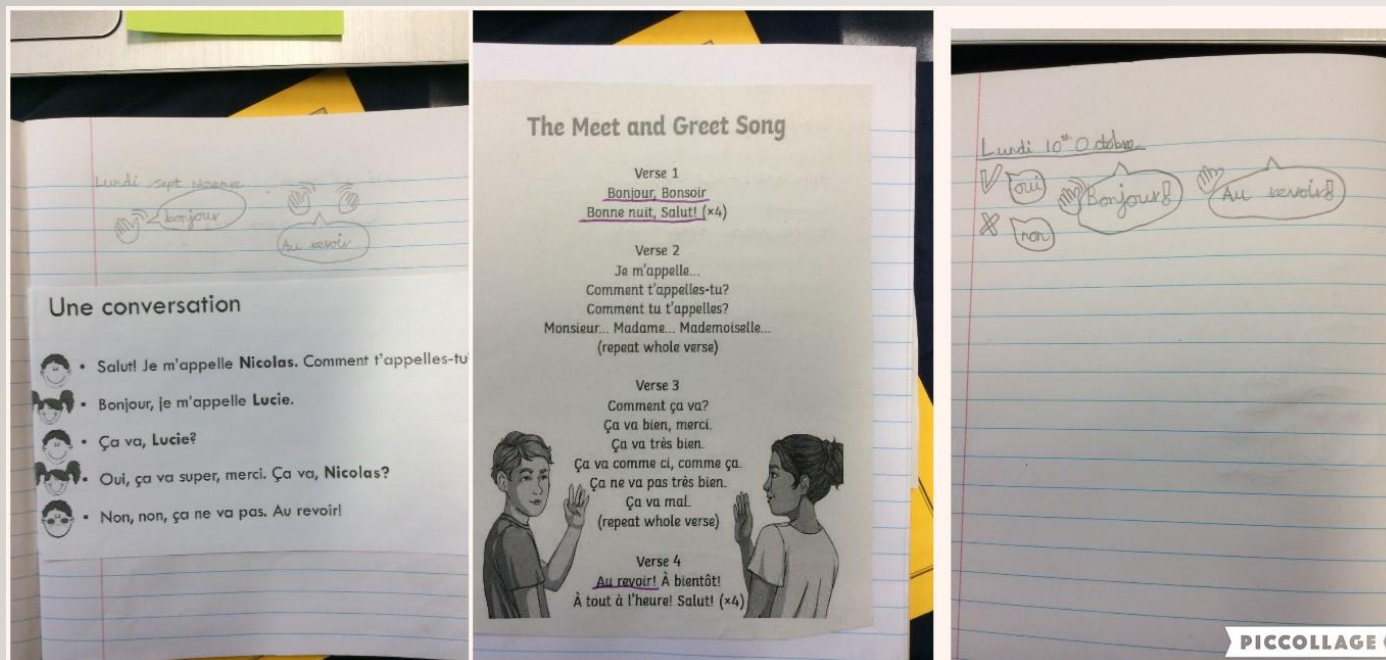 Lundi sept
bonjour
Au revoir
Une conversation
• Salut! Je m'appelle Nicolas. Comment t'appelles-tu
• Bonjour, je m'appelle Lucie.
• Ça va, Lucie?
• Oui, ça va super, merci. Ça va, Nicolas?
• Non, non, ça ne va pas. Au revoir!
The Meet and Greet Song
Verse 1
Bonjour, Bonsoir
Bonne nuit, Salut! (×4)
Verse 2
Je m'appelle...
Comment t'appelles-tu?
Comment tu t'appelles?
Monsieur... Madame... Mademoiselle...
(repeat whole verse)
Verse 3
Comment ça va?
Ça va bien, merci.
Ça va très bien.
Ça va comme ci, comme ça.
Ça ne va pas très bien.
Ça va mal.
(repeat whole verse)
Verse 4
Au revoir! À bientôt!
À tout à l'heure! Salut! (×4)
Lundi 10th Octobre
oui
Bonjour!
Au revoir!
non
PICCOLLAGE